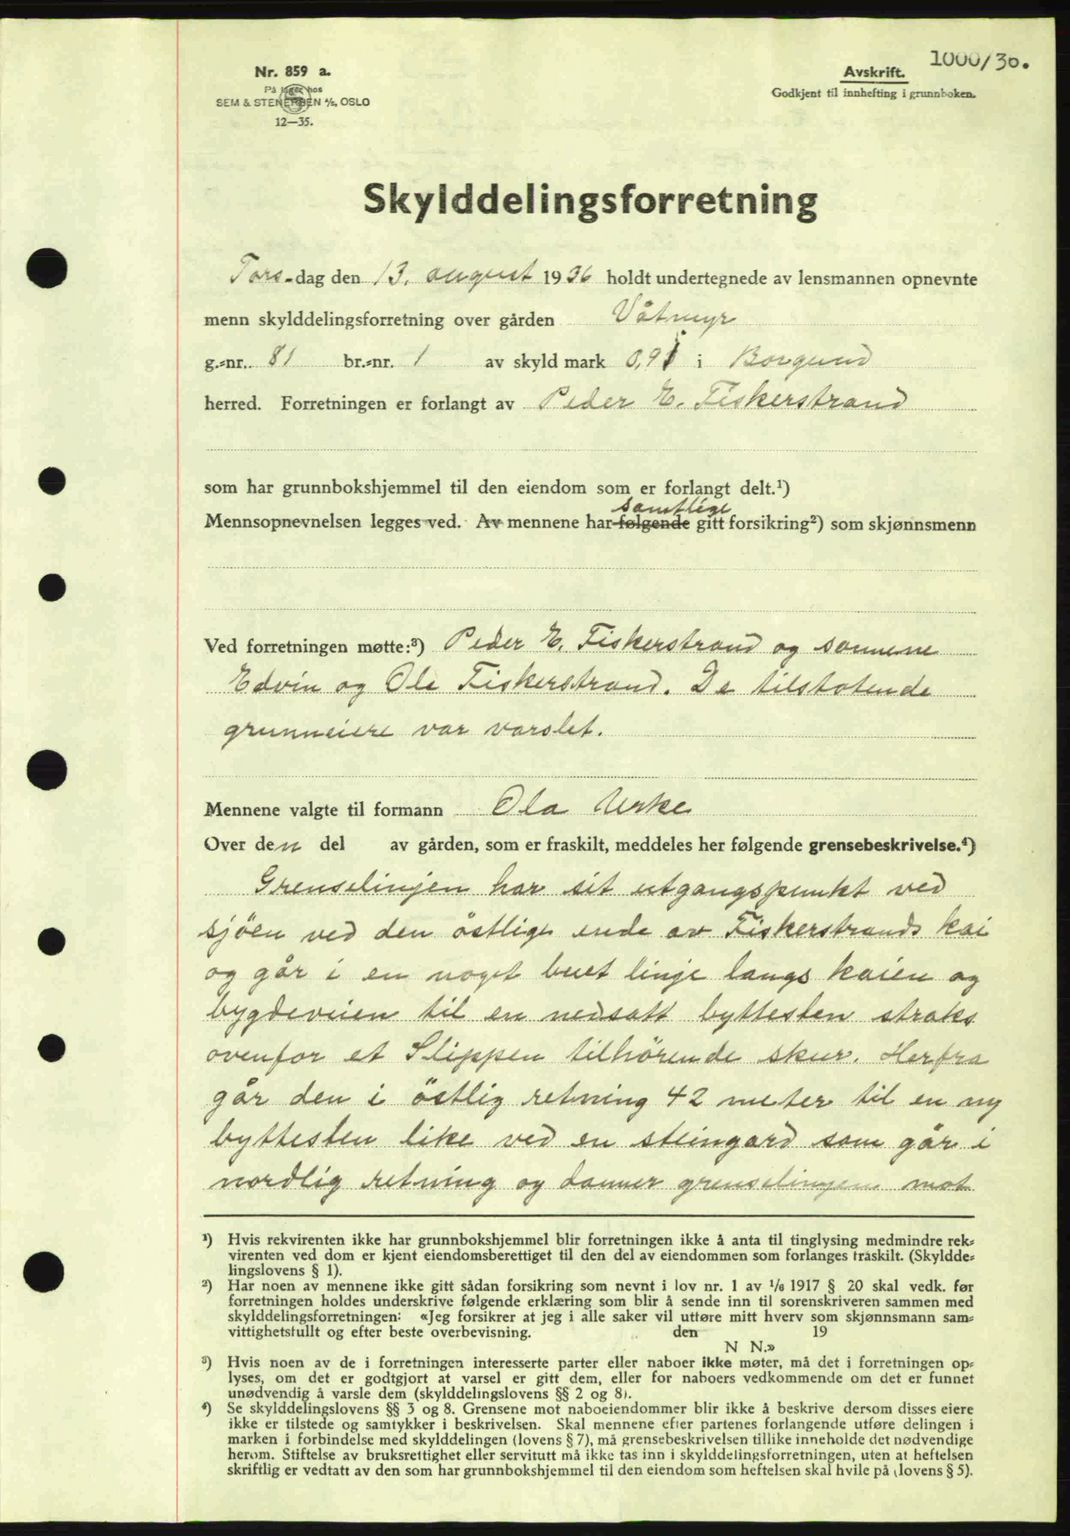 1000/36.
Nr. 859 a.
På lager hos
SEM & STENERSEN A/S, OSLO
12—35.
Avskrift.
Godkjent til innhefting i grunnboken.
Skylddelingsforretning
Tors-dag den 13. august 1936 holdt undertegnede av lensmannen opnevnte
menn skylddelingsforretning over gården Våtmyr
g.-nr. 81 br.-nr. 1 av skyld mark 0,91 i Borgund
herred. Forretningen er forlangt av Peder E. Fiskerstrand
som har grunnbokshjemmel til den eiendom som er forlangt delt.¹)
samtlige
Mennsopnevnelsen legges ved. Av mennene har følgende gitt forsikring²) som skjønnsmenn
Ved forretningen møtte:³) Peder E. Fiskerstrand og sønnene
Edvin og Ole Fiskerstrand. De tilstøtende
grunneiere var varslet.
Mennene valgte til formann Ola Urke
Over den del av gården, som er fraskilt, meddeles her følgende grensebeskrivelse.⁴)
Grenselinjen har sit utgangspunkt ved
sjöen ved den östlige ende av Fiskerstrands kai
og går i en noget buet linje langs kaien og
bygdeveien til en nedsatt byttesten straks
ovenfor et Slippen tilhörende skur. Herfra
går den i östlig retning 42 meter til en ny
byttesten like ved en steingard som går i
nordlig retning og danner grenselinjen mot
¹) Hvis rekvirenten ikke har grunnbokshjemmel blir forretningen ikke å anta til tinglysing medmindre rek-
virenten ved dom er kjent eiendomsberettiget til den del av eiendommen som forlanges fraskilt. (Skyldde-
lingslovens § 1).
²) Har noen av mennene ikke gitt sådan forsikring som nevnt i lov nr. 1 av 1/6 1917 § 20 skal vedk. før
forretningen holdes underskrive følgende erklæring som blir å sende inn til sorenskriveren sammen med
skylddelingsforretningen: «Jeg forsikrer at jeg i alle saker vil utføre mitt hverv som skjønnsmann sam-
vittighetsfullt og efter beste overbevisning. den 19
N N.»
³) Hvis noen av de i forretningen interesserte parter eller naboer ikke møter, må det i forretningen op-
lyses, om det er godtgjort at varsel er gitt dem, eller for naboers vedkommende om det er funnet
unødvendig å varsle dem (skylddelingslovens §§ 2 og 8).
⁴) Se skylddelingslovens §§ 3 og 8. Grensene mot naboeiendommer blir ikke å beskrive dersom disses eiere
ikke er tilstede og samtykker i beskrivelsen. Skal mennene efter partenes forlangende utføre delingen i
marken i forbindelse med skylddelingen (lovens § 7), må grensebeskrivelsen tillike inneholde det nødvendige
herom. Stiftelse av bruksrettighet eller servitutt må ikke tas inn i skylddelingsforretningen, uten at heftelsen
skriftlig er vedtatt av den som har grunnbokshjemmel til den eiendom som heftelsen skal hvile på (lovens § 5).